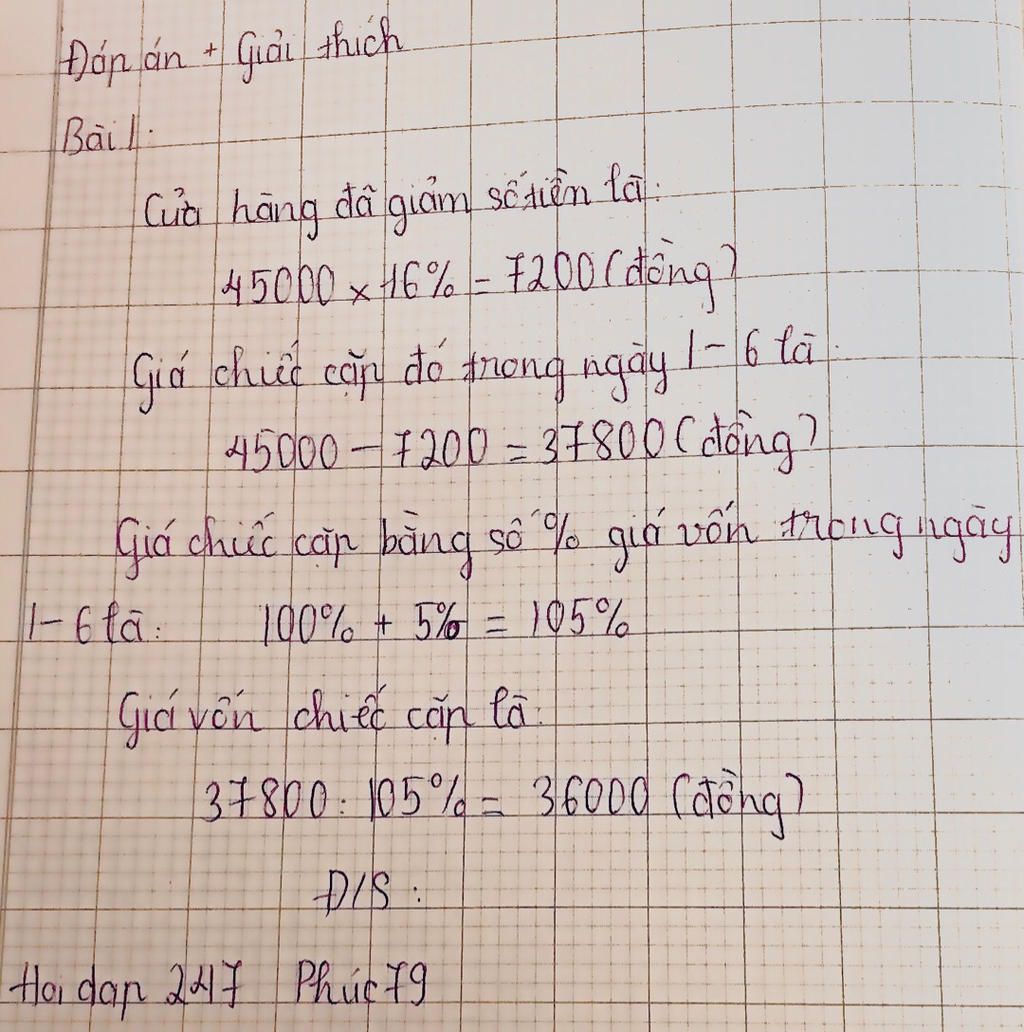 Đáp án + Giải thích
Bài 1:
Cửa hàng đã giảm số tiền là:
45000 x 16% = 7200 (đồng)
Giá chiếc cặp đó trong ngày 1-6 là:
45000 - 7200 = 37800 (đồng)
Giá chiếc cặp bằng số % giá vốn trong ngày
1-6 là: 100% + 5% = 105%
Giá vốn chiếc cặp là:
37800 : 105% = 36000 (đồng)
Đ/S :
Hoi dap 247 Phúc 79